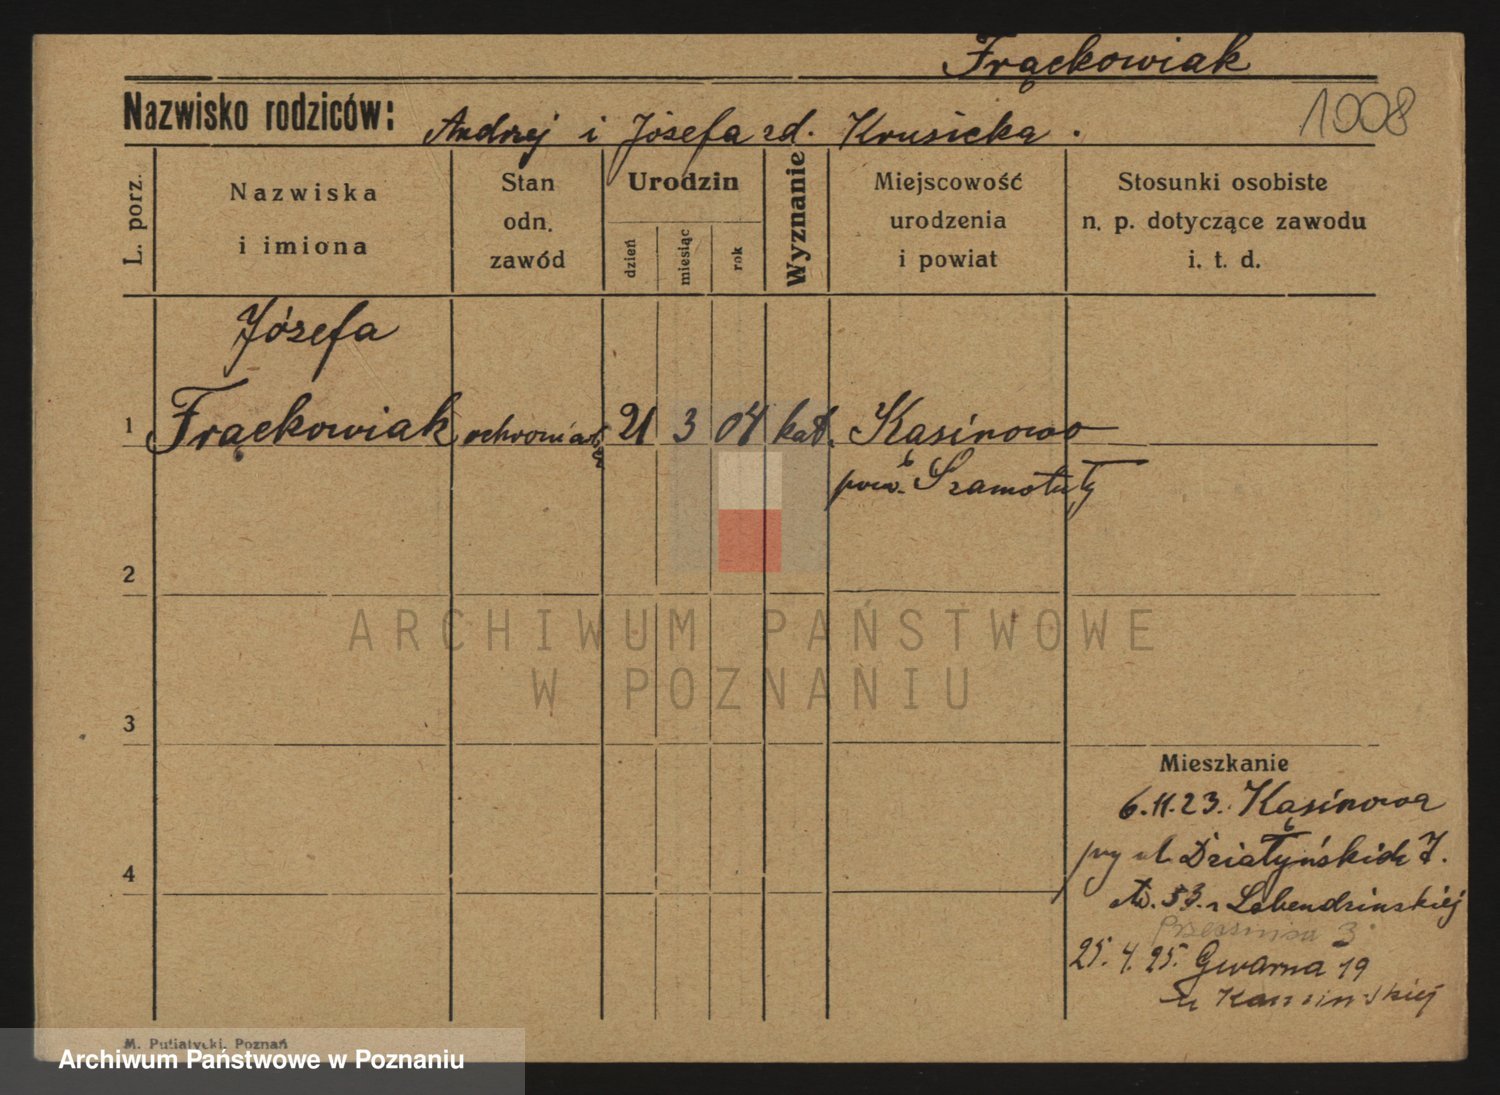 Frąckowiak
Nazwisko rodziców: Andrzej i Józefa zd. Krusicka.
1008
L. porz.
Nazwiska
i imiona
Stan
odn.
zawód
Urodzin
dzień
miesiąc
rok
Wyznanie
Miejscowość
urodzenia
i powiat
Stosunki osobiste
n. p. dotyczące zawodu
i. t. d.
Józefa
1 Frąckowiak 21 3 04 kat. Kąsinowo
pow. Szamotuły
2
ARCHIWUM PAŃSTWOWE
W POZNANIU
3
Mieszkanie
6.11.23. Kąsinowa
Działyńskich 7.
4
53. Lebendzinskiej
3
25.4.25. Gwarna 19
M. Putiatycki, Poznań
Archiwum Państwowe w Poznaniu